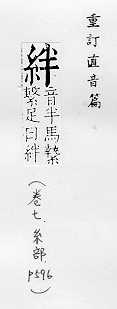 重訂直音篇
絆
音半馬縶
繫足曰絆
(卷七、糸部,
p596)